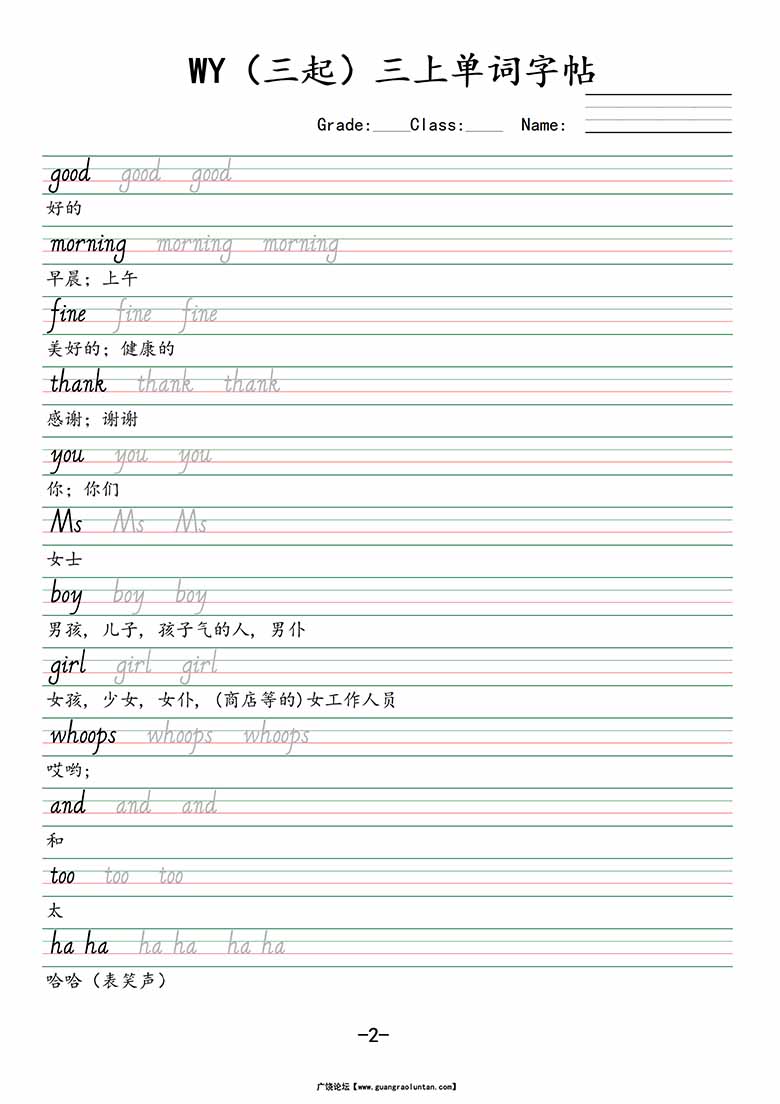 WY（三起）三上单词字帖
Grade:____Class:____ Name:
good good good
好的
morning morning morning
早晨；上午
fine fine fine
美好的；健康的
thank thank thank
感谢；谢谢
you you you
你；你们
Ms Ms Ms
女士
boy boy boy
男孩, 儿子, 孩子气的人, 男仆
girl girl girl
女孩, 少女, 女仆, (商店等的)女工作人员
whoops whoops whoops
哎哟；
and and and
和
too too too
太
ha ha ha ha ha ha
哈哈（表笑声）
-2-
广饶论坛【www.guangraoluntan.com】